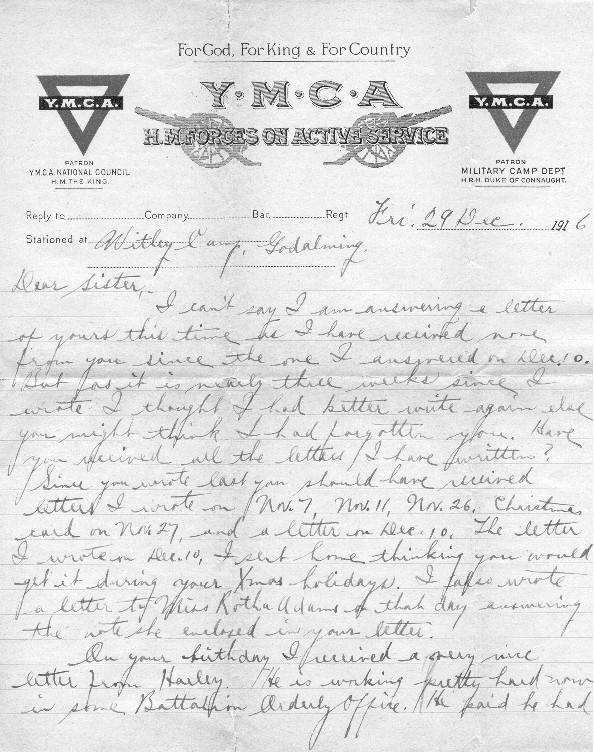 For God, For King & For Country
Y·M·C·A
H.M. FORCES ON ACTIVE SERVICE
Y.M.C.A.
PATRON
Y.M.C.A. NATIONAL COUNCIL
H.M. THE KING.
Y.M.C.A.
PATRON
MILITARY CAMP DEPT
H.R.H. DUKE OF CONNAUGHT.
Reply to Company Bat. Regt Fri. 29 Dec. 1916
Stationed at Witley Camp, Godalming.
Dear Sister,-
I can't say I am answering a letter
of yours this time as I have received none
from you since the one I answered on Dec. 10.
But as it is nearly three weeks since I
wrote I thought I had better write again else
you might think I had forgotten you. Have
you received all the letters I have written?
Since you wrote last you should have received
letters I wrote on Nov. 7, Nov. 11, Nov. 26, Christmas
card on Nov. 27, and a letter on Dec. 10. The letter
I wrote on Dec. 10, I sent home thinking you would
get it during your Xmas holidays. I also wrote
a letter to Miss Rotha Adams on that day answering
the note she enclosed in your letter.
On your birthday I received a very nice
letter from Harley. He is working pretty hard now
in some Battalion Orderly Office. He said he had